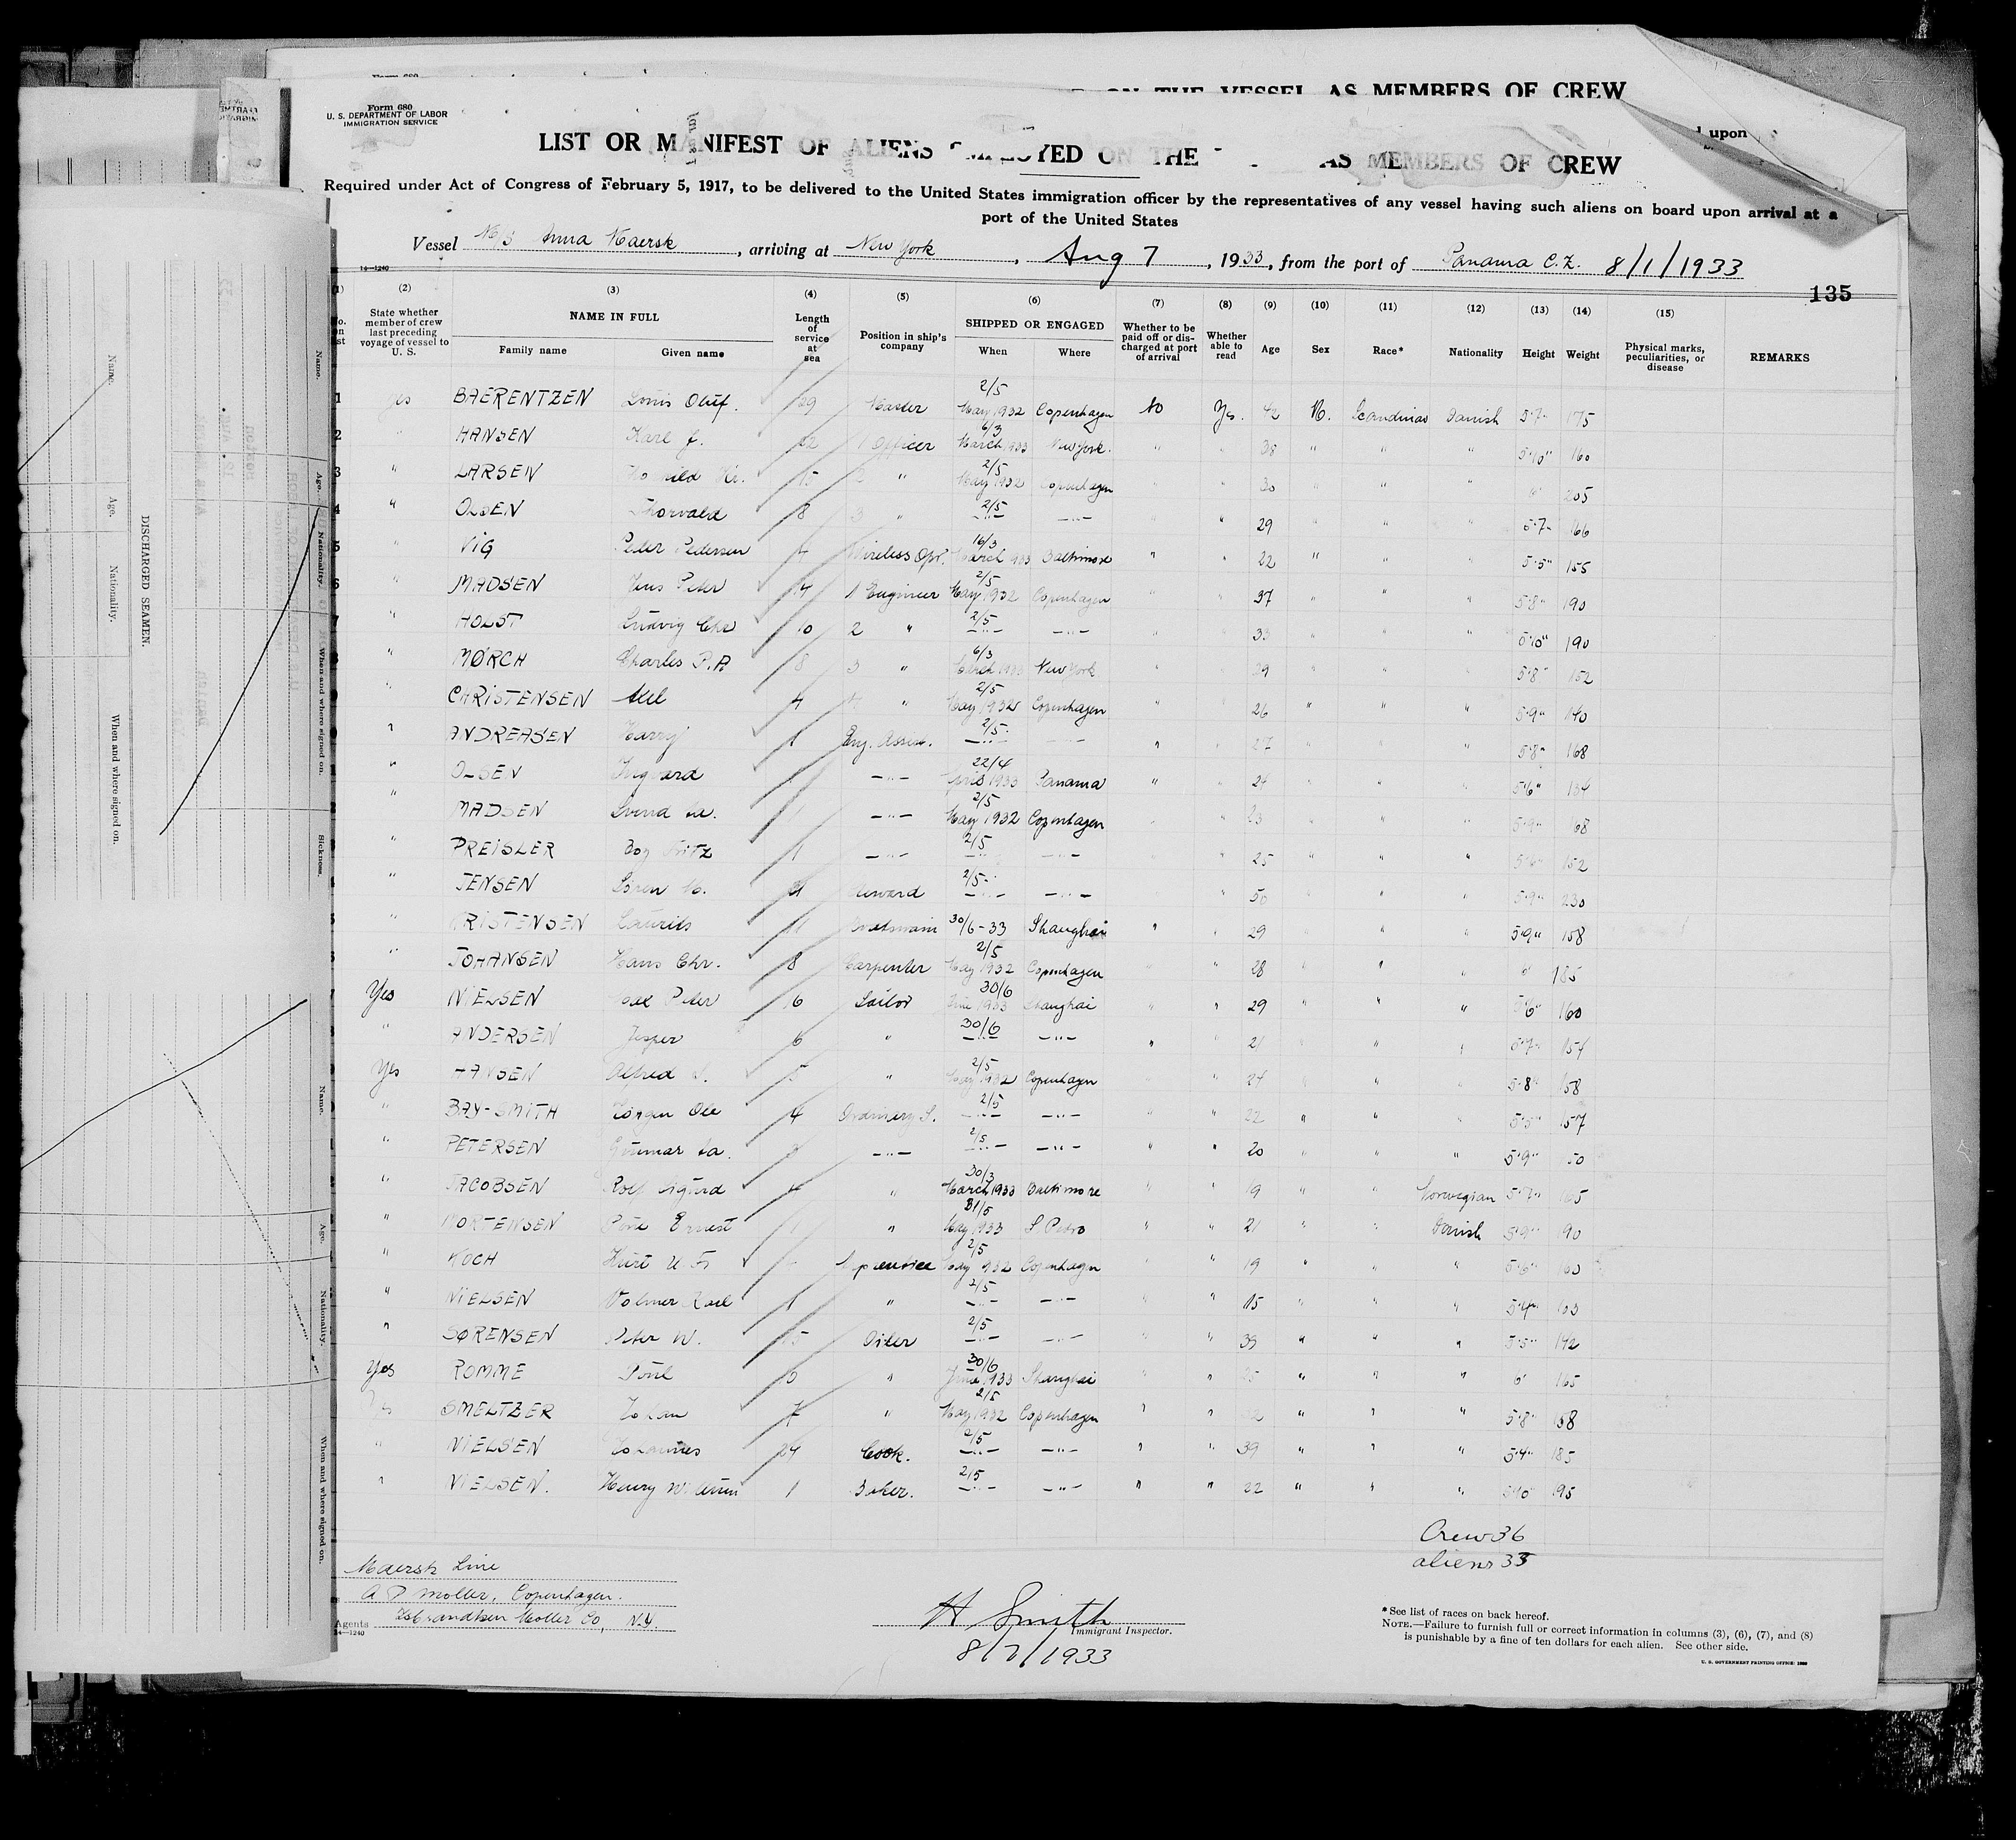 ON THE VESSEL AS MEMBERS OF CREW
Form 680
U. S. DEPARTMENT OF LABOR
IMMIGRATION SERVICE
LIST OR MANIFEST OF ALIENS EMPLOYED ON THE AS MEMBERS OF CREW
Required under Act of Congress of February 5, 1917, to be delivered to the United States immigration officer by the representatives of any vessel having such aliens on board upon arrival at a
port of the United States
Vessel M/S Anna Maersk, arriving at New York, Aug 7, 1933, from the port of Panama C.Z. 8/1/1933
14—1240
135
(1) (2) (3) (4) (5) (6) (7) (8) (9) (10) (11) (12) (13) (14) (15)
State whether member of crew last preceding voyage of vessel to U. S. NAME IN FULL Family name Given name Length of service at sea Position in ship's company SHIPPED OR ENGAGED When Where Whether to be paid off or discharged at port of arrival Whether able to read Age Sex Race* Nationality Height Weight Physical marks, peculiarities, or disease REMARKS
1 yes BAERENTZEN Louis Oluf. 29 Master 2/5 May 1932 Copenhagen No Yes. 42 M. Scandinav Danish 5'7" 175
2 " HANSEN Karl J. 22 1 Officer 6/3 March 1933 New York. " " 38 " " " 5'10" 160
3 " LARSEN 15 2 " 2/5 May 1932 Copenhagen " " 30 " " " 6' 205
4 " OLSEN Thorvald 8 3 " 2/5 —"— —"— " " 29 " " " 5'7" 166
5 " VIG Peder Pedersen 4 Wireless Opr. 16/3 March 1933 Baltimore " " 22 " " " 5'5" 155
6 " MADSEN Jens Peter 14 1 Engineer 2/5 May 1932 Copenhagen " " 37 " " " 5'8" 190
7 " HOLST Ludvig Chr 10 2 " 2/5 —"— —"— " " 33 " " " 5'10" 190
" MØRCH Charles P.A 8 3 " 6/3 March 1933 New York " " 29 " " " 5'8" 152
" CHRISTENSEN Axel 4 4 " 2/5 May 1932 Copenhagen " " 26 " " " 5'9" 140
" ANDREASEN Harry 1 Eng. Assis. 2/5 —"— —"— " " 27 " " " 5'8" 168
" OLSEN Ingvard 1 —"— 22/4 April 1933 Panama " " 24 " " " 5'6" 134
" MADSEN Svend Aa. 1 —"— 2/5 May 1932 Copenhagen " " 23 " " " 5'9" 168
" PREISLER Boy Fritz 1 —"— 2/5 —"— —"— " " 25 " " " 5'6" 152
" JENSEN Sören M. Steward 2/5 —"— —"— " 50 " " " 5'9" 230
" KRISTENSEN Laurits 11 Boatsmain 30/6-33 Shanghai " " 29 " " " 5'9" 158
" JOHANSEN Hans Chr. 8 Carpenter 2/5 May 1932 Copenhagen " " 28 " " " 6' 185
Yes NIELSEN Peter 6 Sailor 30/6 June 1933 Shanghai " " 29 " " " 5'6" 160
" ANDERSEN Jesper 6 " 30/6 —"— —"— " " 21 " " " 5'7" 154
Yes HANSEN Alfred 5 " 2/5 May 1932 Copenhagen " " 24 " " " 5'8" 158
" BAY-SMITH Jörgen Ole 4 Ordinary S. 2/5 —"— —"— " " 22 " " " 5'5" 157
" PETERSEN Gunnar Aa. —"— 2/5 —"— —"— " " 20 " " " 5'9" 150
" JACOBSEN Rolf Sigurd 4 " 30/3 March 1933 Baltimore " " 19 " " Norwegian 5'7" 165
" MORTENSEN Ernest 1 " 31/5 May 1933 S. Pedro " " 21 " " Danish 5'9" 190
" KOCH Kurt Apprentice 2/5 May 1932 Copenhagen " " 19 " " " 5'6"
" NIELSEN Volmer Karl 1 " 2/5 —"— —"— " " 15 " " " 5'4"
" SØRENSEN Peter W. 15 Oiler 2/5 —"— —"— " " 39 " " " 5'5" 142
Yes ROMME Poul 10 " 30/6 June 1933 Shanghai " " 25 " " " 6' 165
SMELTZER Johan 7 " 2/5 May 1932 Copenhagen " " " " " 5'8" 158
" NIELSEN Johannes 24 Cook. 2/5 —"— —"— " " 39 " " " 5'4" 185
" NIELSEN. Henry William 1 Baker. 2/5 —"— —"— " " 22 " " " 5'10" 195
Crew 36
aliens 35
Maersk Line
A P Moller, Copenhagen.
Agents Isbrandtsen Moller Co, N.Y.
14—1240
H Smith
Immigrant Inspector.
8/7/1933
*See list of races on back hereof.
NOTE.—Failure to furnish full or correct information in columns (3), (6), (7), and (8)
is punishable by a fine of ten dollars for each alien. See other side.
U. S. GOVERNMENT PRINTING OFFICE: 1930
DISCHARGED SEAMEN.
Name. Age. Nationality. When and where signed on.
Name. Age. Nationality. When and where signed on. Sickness.
Name. Age. Nationality. When and where signed on.